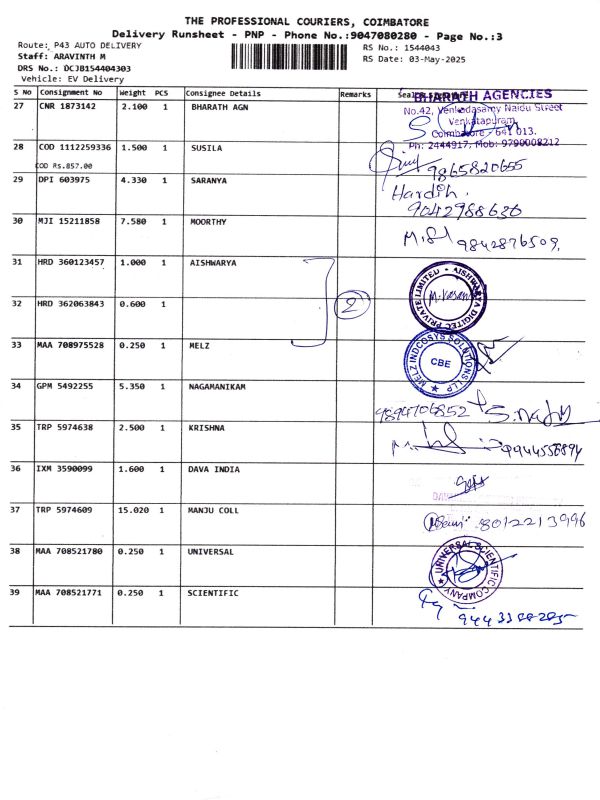 THE PROFESSIONAL COURIERS, COIMBATORE
Delivery Runsheet - PNP - Phone No.:9047080280 - Page No.:3
Route: P43 AUTO DELIVERY
RS No.: 1544043
Staff: ARAVINTH M
RS Date: 03-May-2025
DRS No.: DCJB154404303
Vehicle: EV Delivery
S No Consignment No Weight PCS Consignee Details Remarks
27 CNR 1873142 2.100 1 BHARATH AGN
BHARATH AGENCIES
No.42, Venkadasamy Naidu Street
Venkatapuram,
Coimbatore - 641 013.
Ph: 2444917, Mob: 9790008212
28 COD 1112259336 1.500 1 SUSILA
COD Rs.857.00
9865820655
29 DPI 603975 4.330 1 SARANYA
Hardih.
9042988636
30 MJI 15211858 7.580 1 MOORTHY
9842876509,
31 HRD 360123457 1.000 1 AISHWARYA
AISHWARYA DIGITEC PRIVATE LIMITED
32 HRD 362063843 0.600 1
2
33 MAA 708975528 0.250 1 MELZ
MELZ INDCOSYS SOLUTIONS LLP
CBE
34 GPM 5492255 5.350 1 NAGAMANIKAM
9894706852
35 TRP 5974638 2.500 1 KRISHNA
9944556894
36 IXM 3590099 1.600 1 DAVA INDIA
37 TRP 5974609 15.020 1 MANJU COLL
8012213996
38 MAA 708521780 0.250 1 UNIVERSAL
UNIVERSAL SCIENTIFIC COMPANY
39 MAA 708521771 0.250 1 SCIENTIFIC